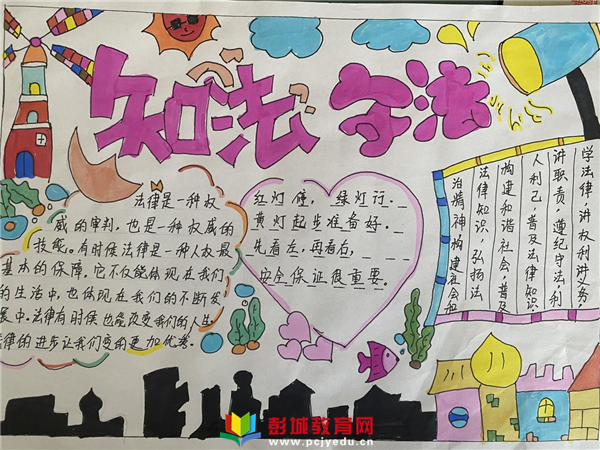 知法 守法
法律是一种权
威的审判,也是一种权威的
技能。有时候法律是一种人权最
基本的保障,它不仅能体现在我们
的生活中,也体现在我们的不断发
展中。法律有时候也能改变我们的人生
法律的进步让我们变的更加优秀。
红灯停,绿灯行。
黄灯起步准备好。
先看左,再看右,
安全保证很重要。
学法律,讲权利讲义务,
讲职责,遵纪守法利
人利己,普及法律知识
构建和谐社会,普及
法律知识,弘扬法
治精神构建社会和
彭城教育网
www.pcjyedu.cn